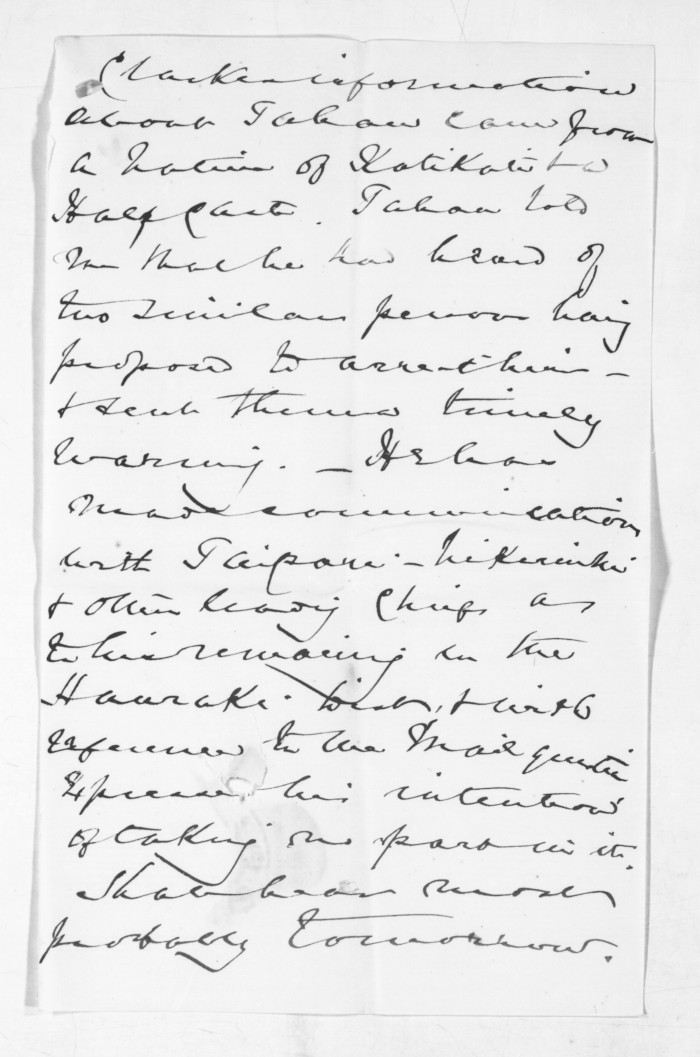 Clarkes information
about Tahau came from
a native of Katikati & a
Half Caste. Tahau told
me that he had heard of
two similar persons having
proposed to arrest him –
& sent them a timely
warning. – He has
made communication
with Taipari –
& other leading Chiefs as
to his remaining in the
Hauraki Dist, & with
reference to the Road question
Express his intention
of taking no part in it.
Shall hear most
probably tomorrow.